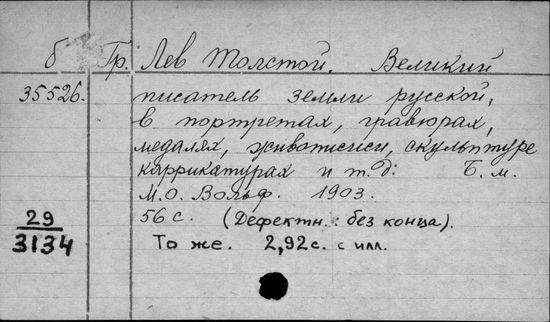 б Гр. Лев Толстой. Великий
35526. писатель земли русской,
в портретах, гравюрах,
медалях, живописи, скульптуре
каррикатурах и т.д: Б.м.
М.О. Вольф. 1903.
29 56 с. (Дефектн.: без конца).
3134 То же. 2,92с. с илл.